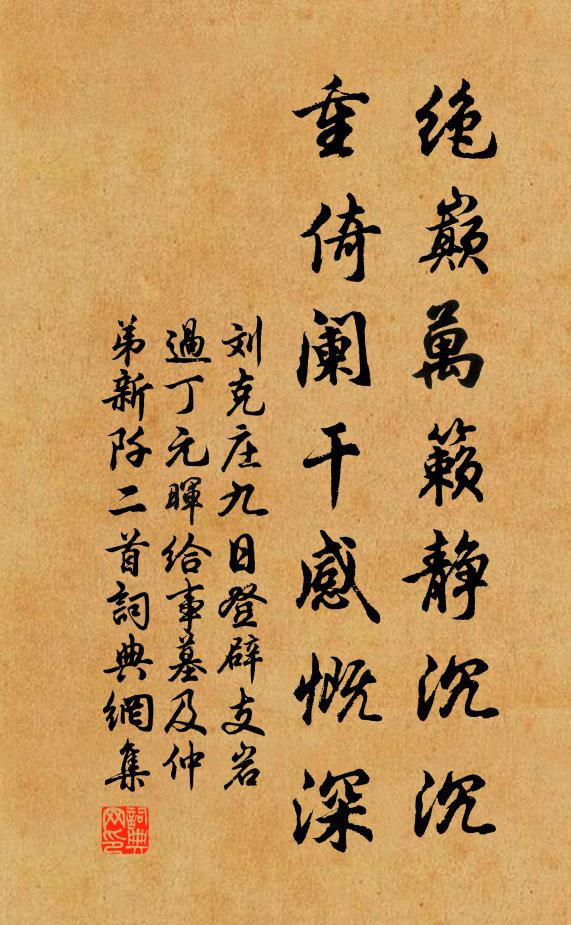 绝巅萬籁静沉沉
重倚阑干感慨深
刘克庄九日登辟支岩
過丁元暉给事墓及仲
弟新阡二首詞典網集
詞典網印